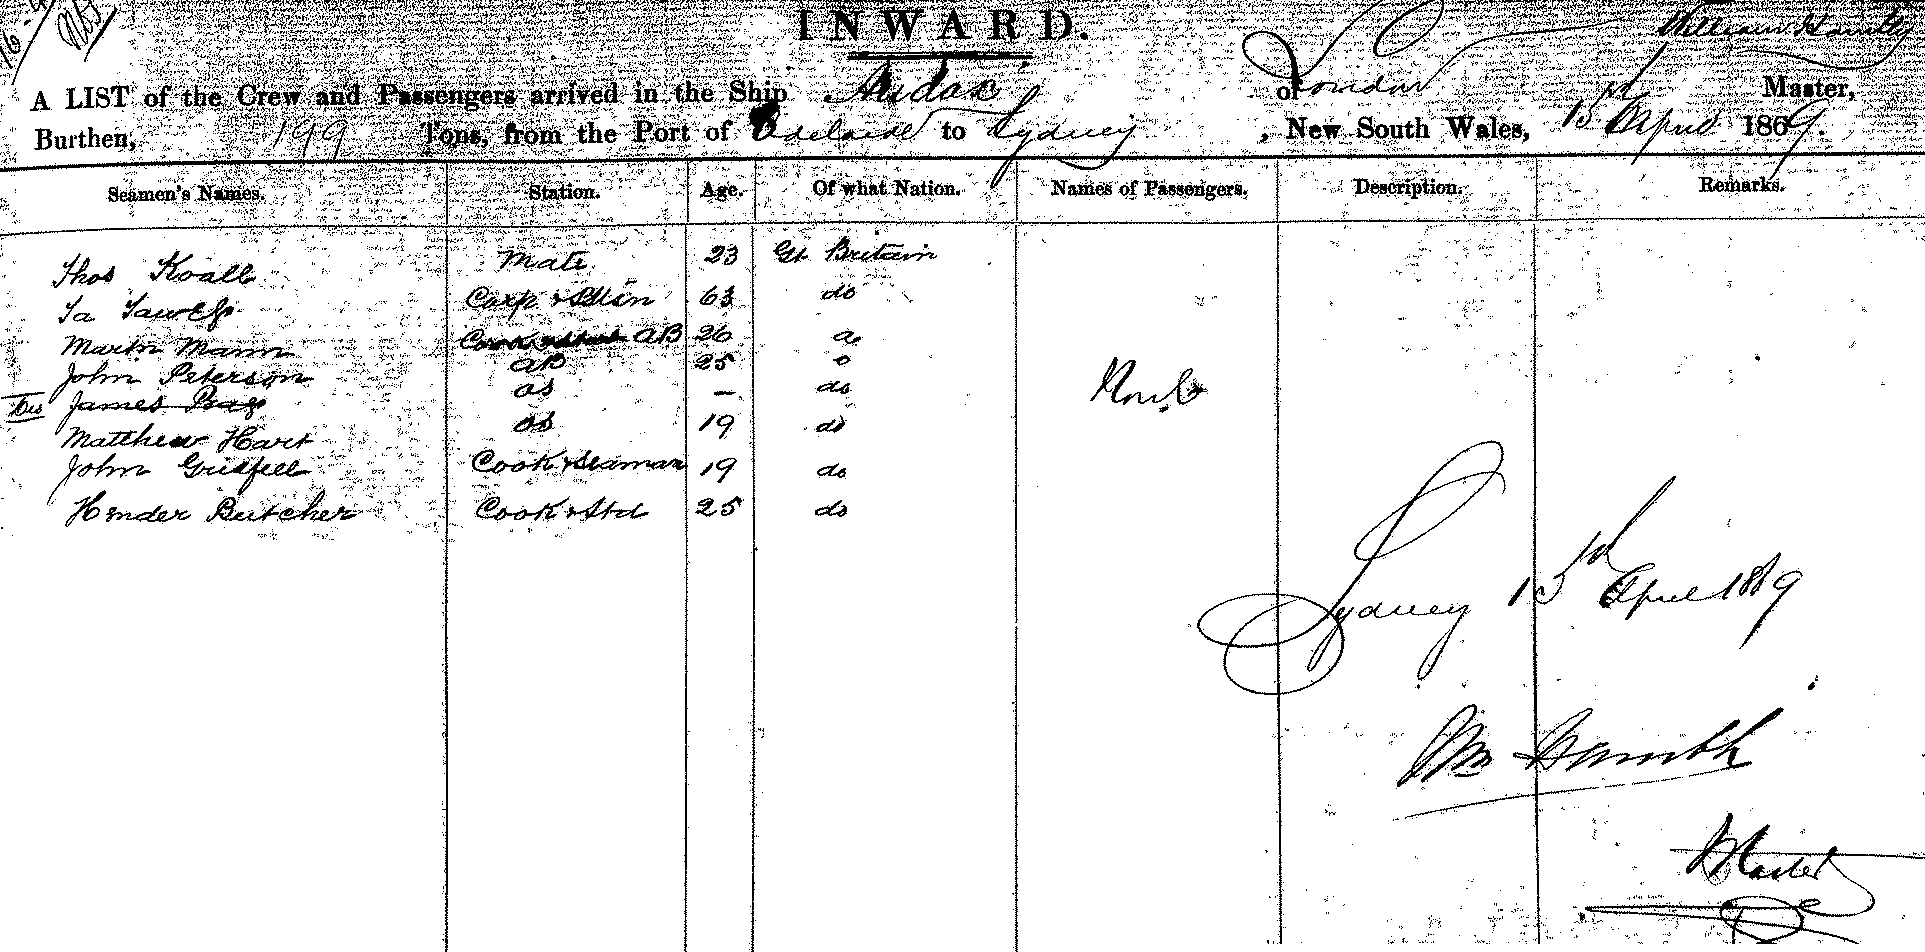 16
INWARD.
A LIST of the Crew and Passengers arrived in the Ship Audax of London William Master,
Burthen, 199 Tons, from the Port of Adelaide to Sydney, New South Wales, 15th April 1869.
Seamen's Names. Station. Age. Of what Nation. Names of Passengers. Description. Remarks.
Thos Mate 23 Gt Britain
Carp & 63 do
Martin Mann Cook AB 26
John Peterson AB 25
James OS — do
Matthew Hart OS 19 do
John Cook & Seaman 19 do
Hender Butcher Cook & Std 25 do
None
Sydney 15th April 1869
Wm
Master